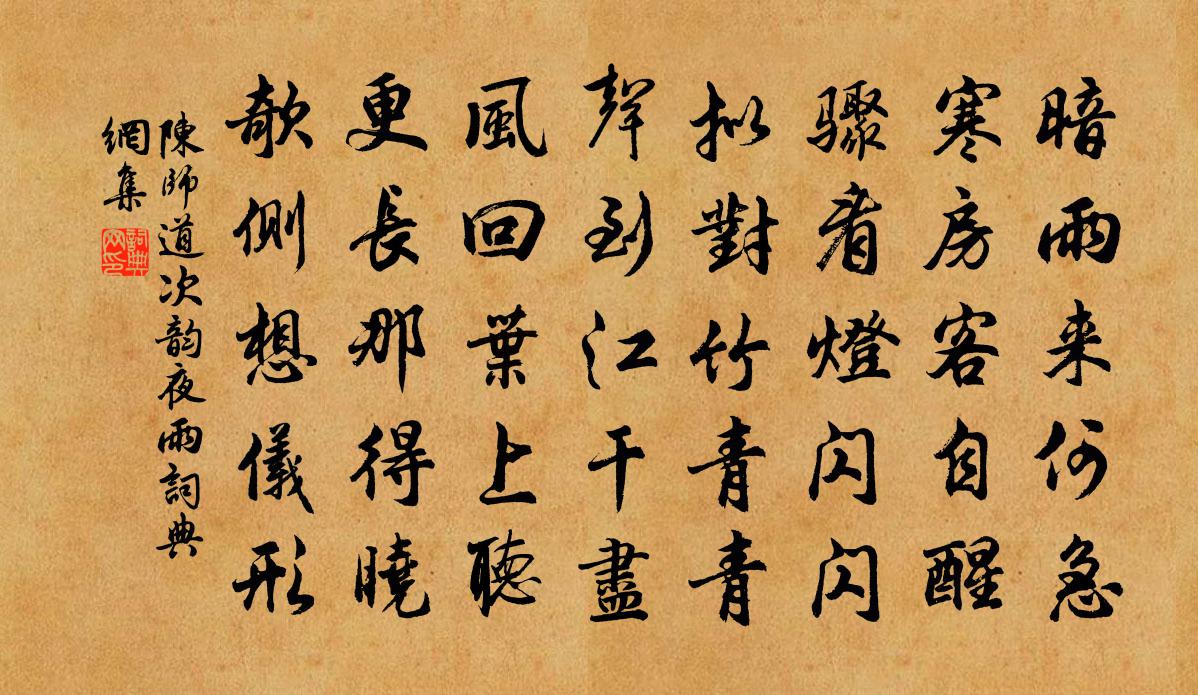 暗雨来何急
寒房客自醒
骤看燈闪闪
拟對竹青青
聲到江干盡
風回葉上聽
更長那得曉
欹側想儀形
陳師道次韵夜雨詞典
網集
詞典
网印